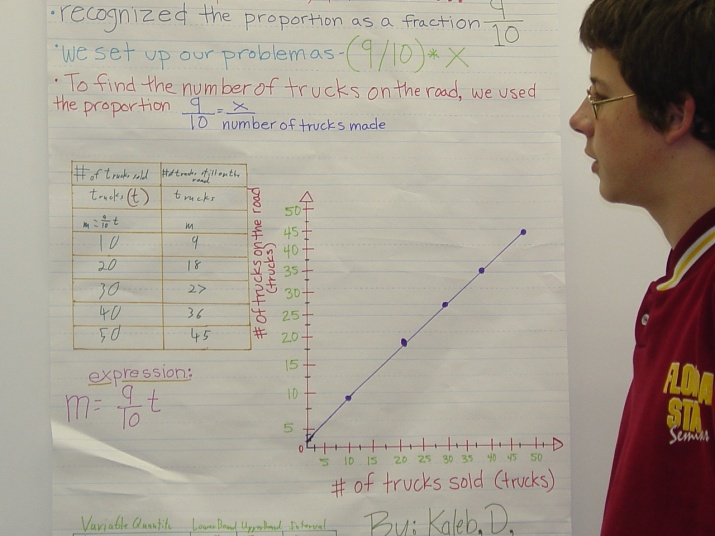 •recognized the proportion as a fraction 9/10
•we set up our problem as - (9/10)*x
•To find the number of trucks on the road, we used
the proportion 9/10 = x/number of trucks made
# of trucks sold # of trucks still on the road
trucks (t) trucks
m = 9/10 t m
10 9
20 18
30 27
40 36
50 45
expression:
m = 9/10 t
# of trucks on the road
(trucks)
50
45
40
35
30
25
20
15
10
5
0
5 10 15 20 25 30 35 40 45 50
# of trucks sold (trucks)
By: Kaleb. D.
Variable Quantity Lower Bound Upper Bound Interval
FLO
STA
Semin